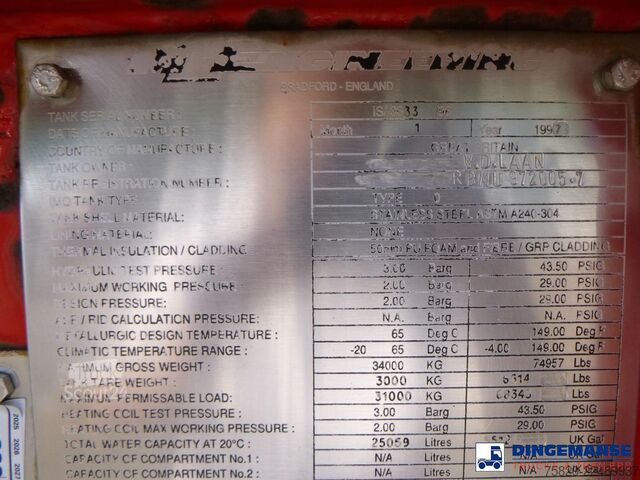 BRADFORD - ENGLAND
TANK SERIAL NUMBER :
DATE OF MANUFACTURE : Month 1 Year 1997
COUNTRY OF MANUFACTURE : GREAT BRITAIN
TANK OWNER : V.D.LAAN
TANK REGISTRATION NUMBER : 972005-7
IMO TANK TYPE : TYPE 0
TANK SHELL MATERIAL : STAINLESS STEEL ASTM A240-304
LINING MATERIAL : NONE
THERMAL INSULATION / CLADDING : 50mm PU FOAM and / GRP CLADDING
HYDRAULIC TEST PRESSURE : 3.00 Barg 43.50 PSIG
MAXIMUM WORKING PRESSURE : 2.00 Barg 29.00 PSIG
DESIGN PRESSURE : 2.00 Barg 29.00 PSIG
ADR / RID CALCULATION PRESSURE : N.A. Barg N.A. PSIG
METALLURGIC DESIGN TEMPERATURE : 65 Deg C 149.00 Deg F
CLIMATIC TEMPERATURE RANGE : -20 65 Deg C -4.00 149.00 Deg F
MAXIMUM GROSS WEIGHT : 34000 KG 74957 Lbs
TARE WEIGHT : 3000 KG 6614 Lbs
MAXIMUM PERMISSABLE LOAD : 31000 KG 68343 Lbs
HEATING COIL TEST PRESSURE : 3.00 Barg 43.50 PSIG
HEATING COIL MAX WORKING PRESSURE : 2.00 Barg 29.00 PSIG
TOTAL WATER CAPACITY AT 20°C : 25059 Litres UK Gal
CAPACITY OF COMPARTMENT No.1 : N/A Litres N/A
CAPACITY OF COMPARTMENT No.2 : N/A Litres
2025 2026 2027
DINGEMANSE